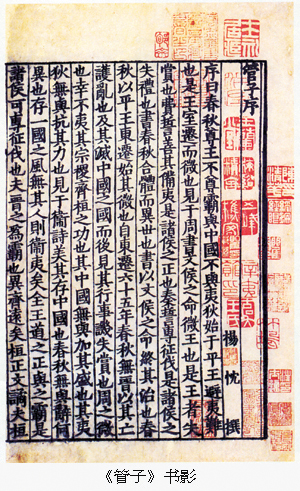 管子序
楊忱 撰
序曰春秋尊王不尊霸與中國不與夷狄始于平王避夷難
也是王室遷而微也見于周書文侯之命微王也是王者失
賞也費誓善其備夷是諸侯之正也秦誓專征伐是諸侯之
失禮也書春秋合體而異世也書以文侯之命終其治也春
秋以平王東遷始其微也自東遷六十五年春秋無晉以其亡
護亂也及其滅中國之國而後見其行事譏失賞也周之微
也幸不夷其宗稷齊桓之功也其中國無與加其盛也其夷
狄無與抗其力也見于衞詩美其存中國也春秋無與辭何
異也存一國之風無其人則衞夷矣全王道之正與之霸是
諸侯可專征伐也夫晉之爲霸也異齊遠矣桓正文譎夫桓
《管子》书影